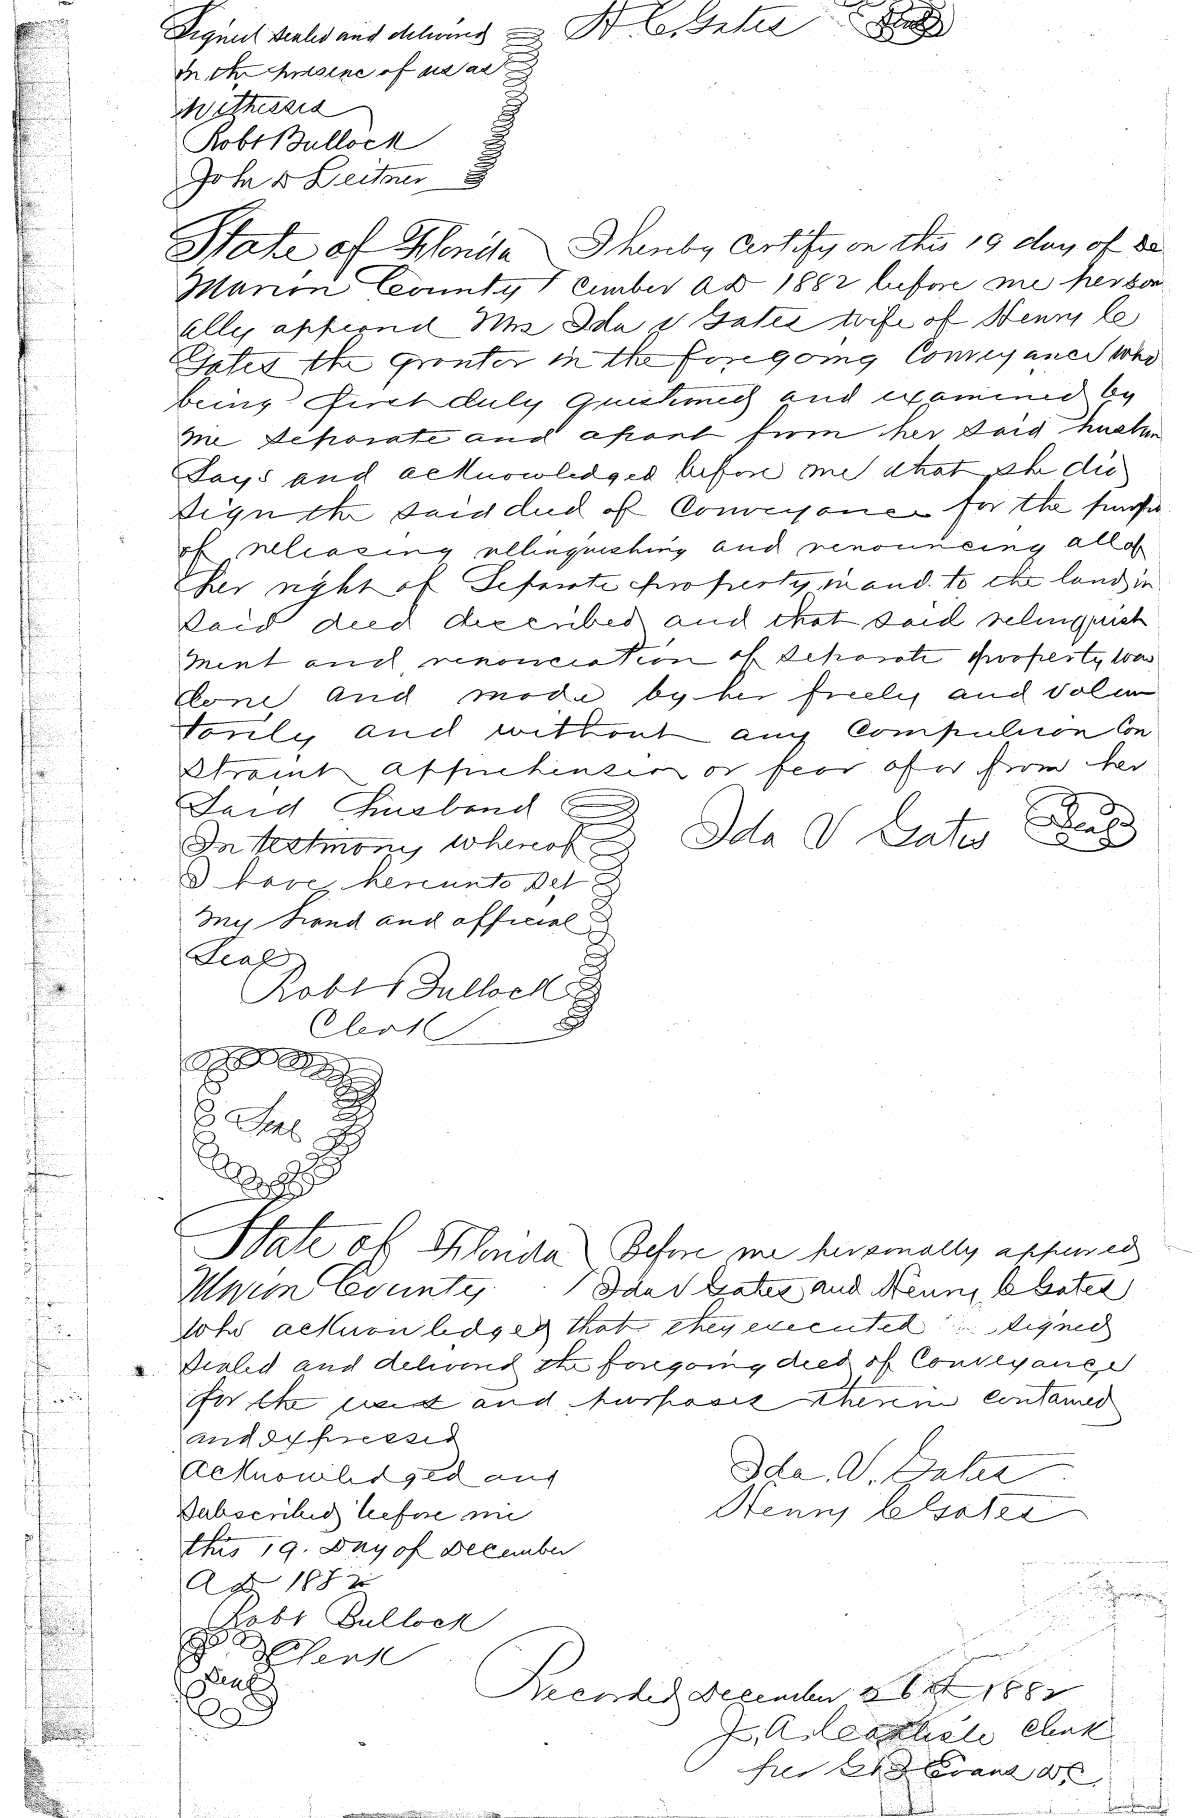 Signed sealed and delivered H. C. Gates Seal
in the presenc of us as
Witnesses
Robt Bullock
John D Leitner
State of Florida I hereby Certify on this 19 day of De
Marion County cember AD 1882 before me person
ally appeard Mrs Ida V Gates wife of Henry C
Gates the grantor in the foregoing Conveyance who
being first duly questioned and examined by
me separate and apart from her said husban
Says and acknowledged before me that she did
sign the said deed of Conveyance for the purpse
of releasing relinquishing and renouncing all of
her right of Separate property in and to the land in
said deed described and that said relinquish
ment and renonciation of separate property was
done and made by her freely and volun
tarily and without any Compulsion Con
straint apprehension or fear of or from her
Said husband Ida V Gates Seal
In testimony whereof
I have hereunto Set
my hand and official
Seal
Robt Bullock
Clerk
Seal
State of Florida Before me personally appeared
Marion County Ida V Gates and Henry C Gates
who acknowledged that they executed signed
sealed and deliverd the foregoing deed of Conveyance
for the uses and purposes therein contained
and expressed
Acknowledged and Ida. V. Gates
Subscribed before me Henry C Gates
this 19. Day of December
AD 1882
Robt Bullock
Clerk
Seal
Recorded December 1882
J, A, Clerk
per Evans D C